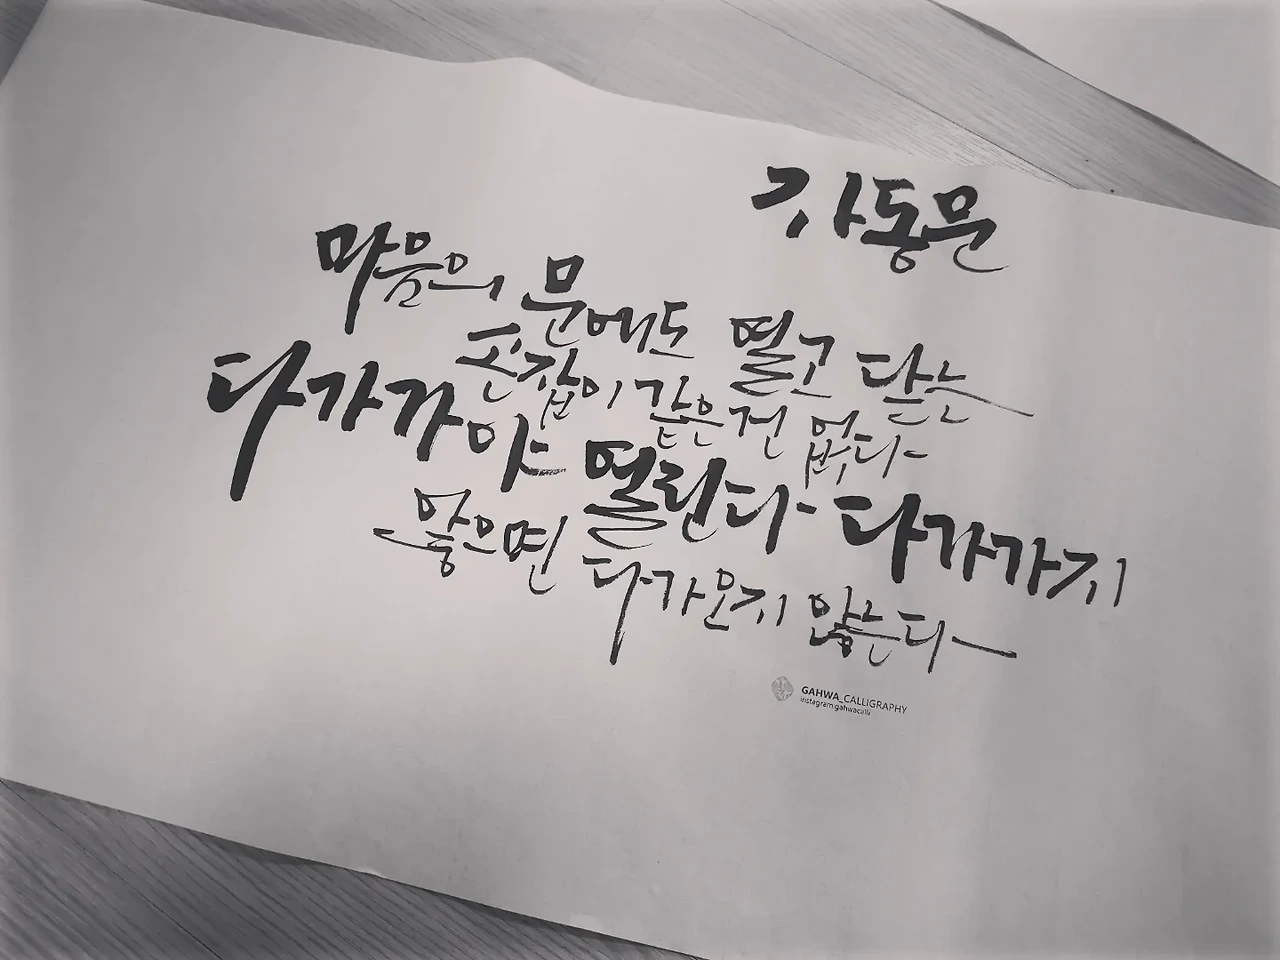 자동문
마음의 문에도 열고 닫는
손잡이 같은건 없다
다가가야 열린다 다가가지
않으면 다가오지 않는다
GAHWA_CALLIGRAPHY
instagram.gahwacalli